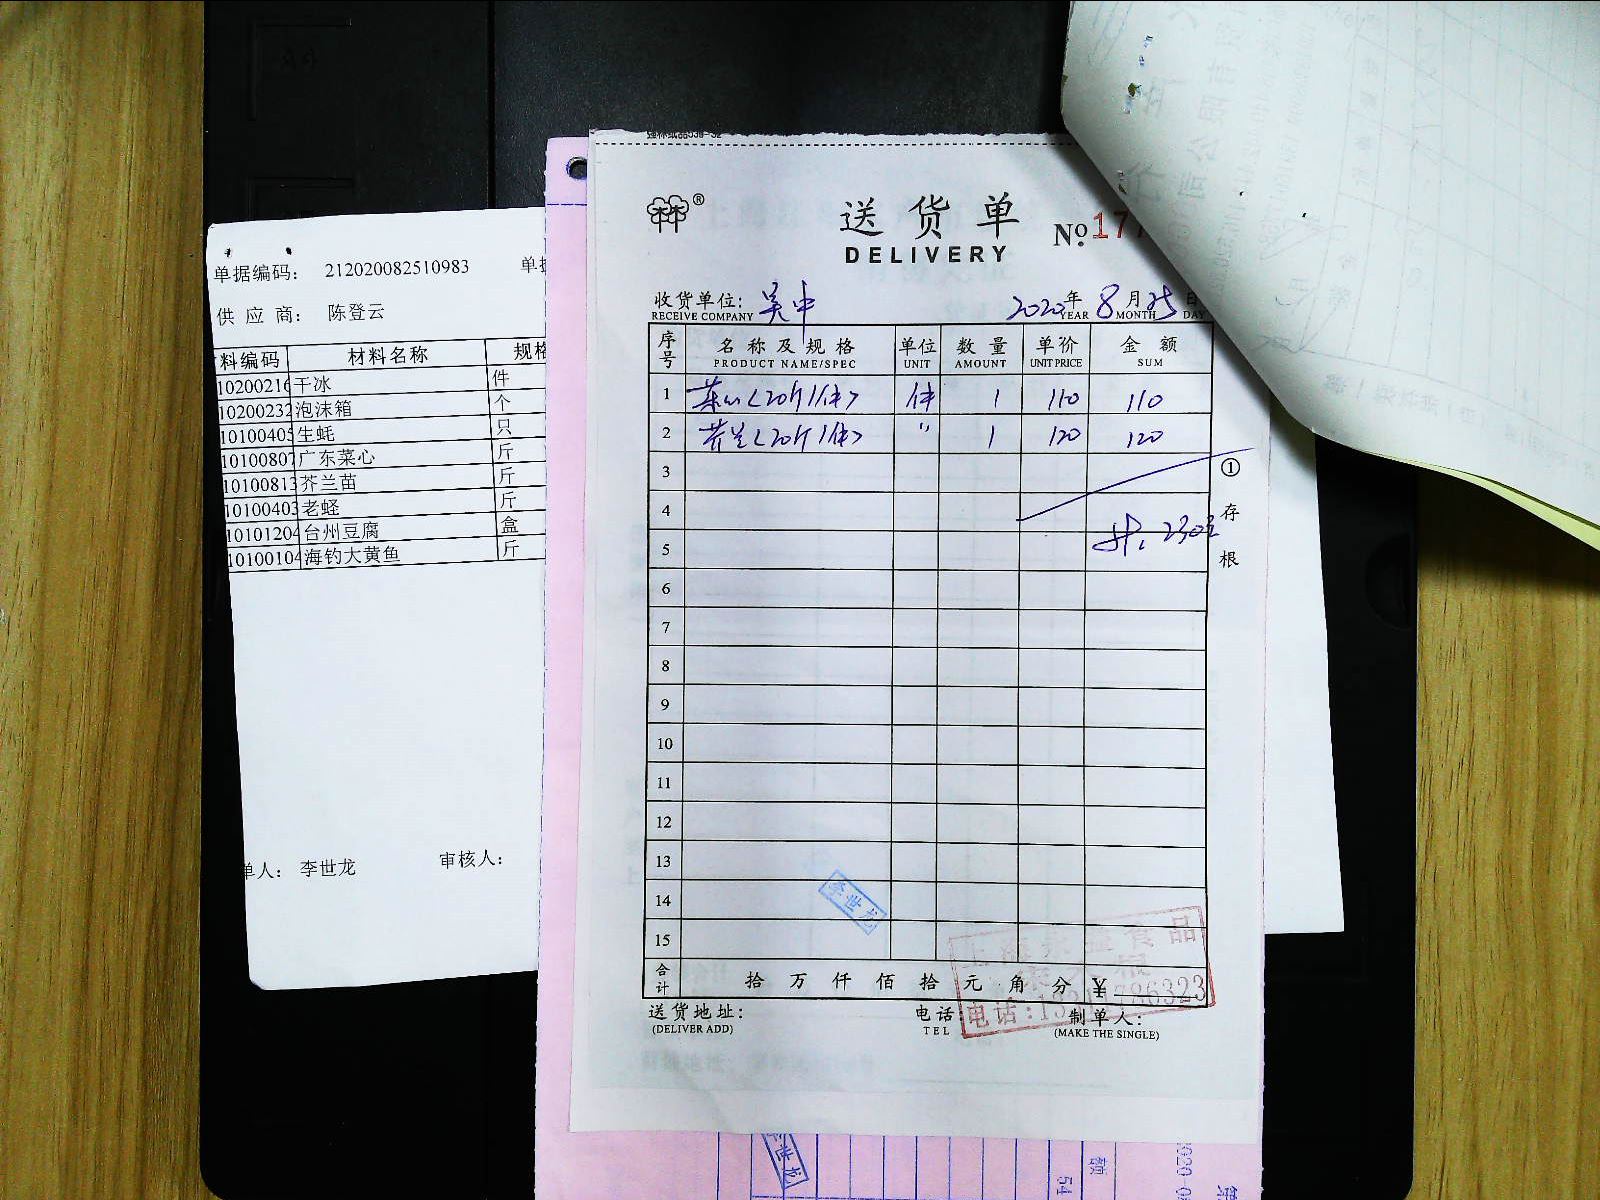 单据编码： 212020082510983 单据
供 应 商： 陈登云
料编码 材料名称 规格
10200216 干冰 件
10200232 泡沫箱 个
10100405 生蚝 只
10100807 广东菜心 斤
10100813 芥兰苗 斤
10100403 老蛏 斤
10101204 台州豆腐 盒
10100104 海钓大黄鱼 斤
单人： 李世龙 审核人：
送货单
DELIVERY
No. 177
收货单位: 吴中
RECEIVE COMPANY
2020年 8 月 25 日
YEAR MONTH DAY
序号 名称及规格 单位 数量 单价 金额
PRODUCT NAME/SPEC UNIT AMOUNT UNIT PRICE SUM
1 菜心<20斤/件> 件 1 110 110
2 芥兰<20斤/件> 〃 1 120 120
3
4
5 共: 230元
6
7
8
9
10
11
12
13
14
15
① 存根
李世龙
合计 拾 万 仟 佰 拾 元 角 分 ¥
送货地址: 电话: 制单人:
(DELIVER ADD) TEL (MAKE THE SINGLE)
食品
电话:
李世龙
额
54